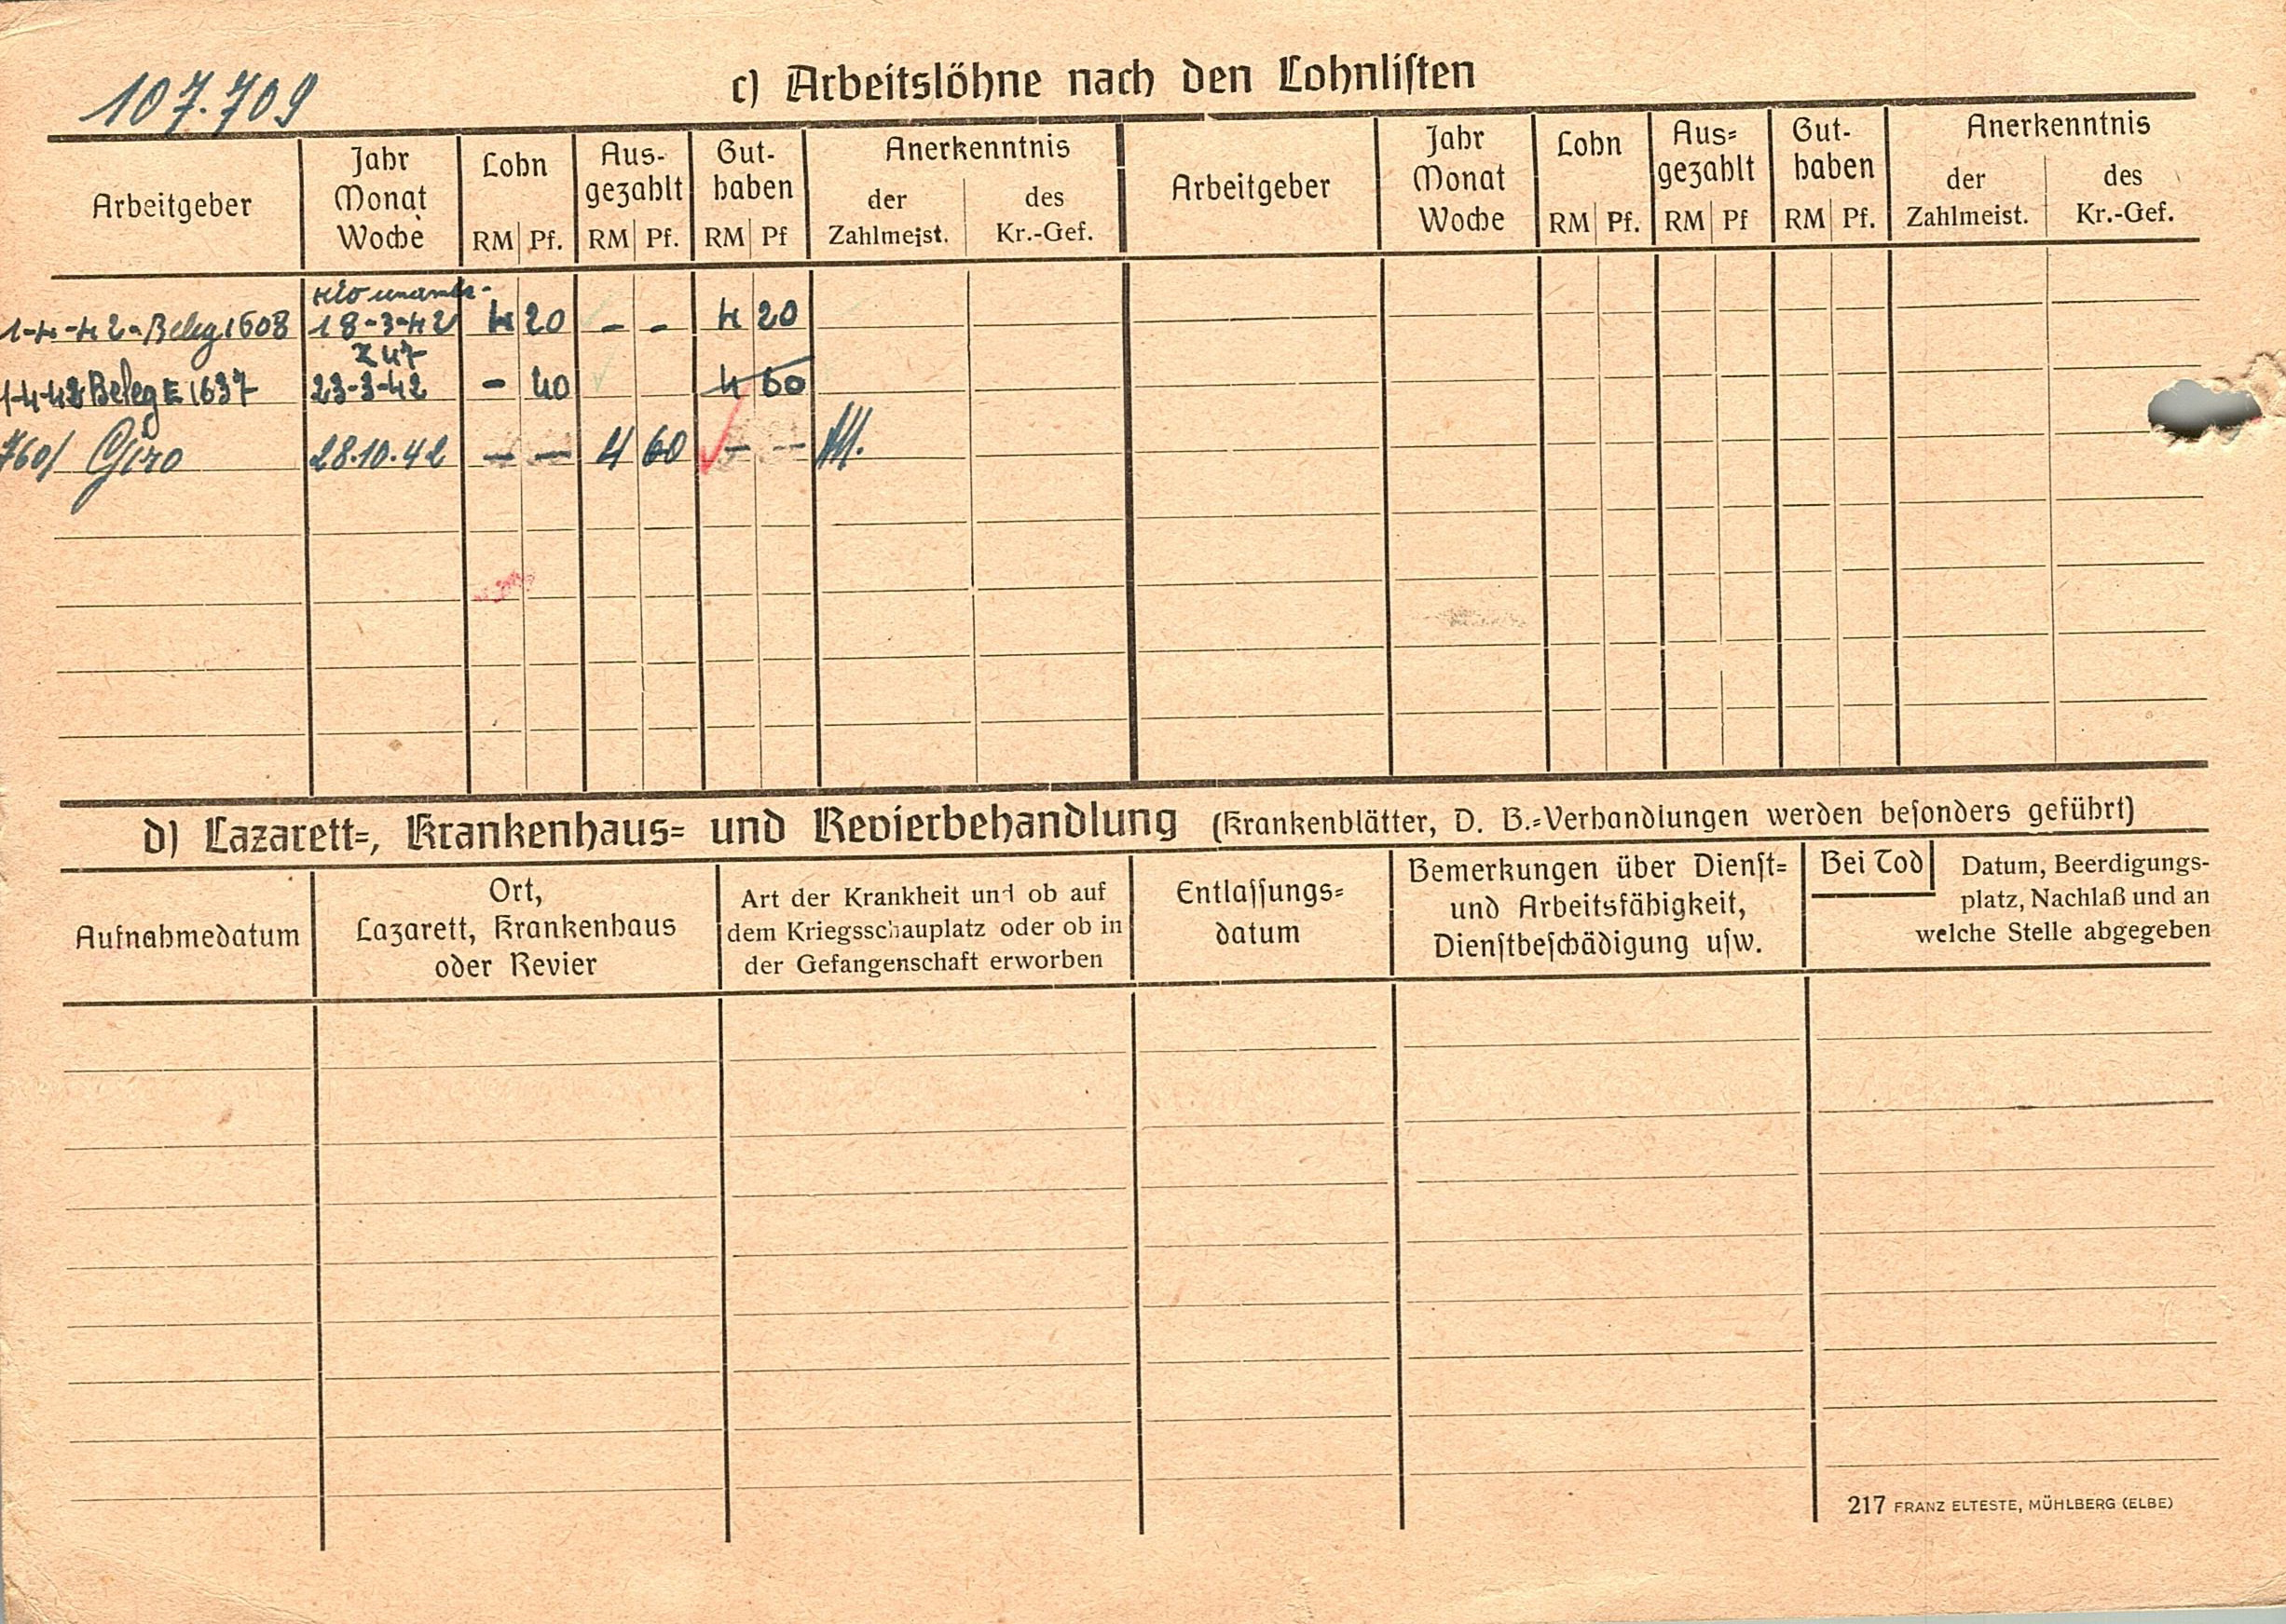 107.709
c) Arbeitslöhne nach den Lohnlisten
Arbeitgeber
Jahr
Monat
Woche
Lohn
RM Pf.
Aus-
gezahlt
RM Pf.
Gut-
haben
RM Pf
Anerkenntnis
der
Zahlmeist.
des
Kr.-Gef.
Arbeitgeber
Jahr
Monat
Woche
Lohn
RM Pf.
Aus=
gezahlt
RM Pf
Gut-
haben
RM Pf.
Anerkenntnis
der
Zahlmeist.
des
Kr.-Gef.
1-4-42-Beleg 1608 18-3-42 4 20 - - 4 20
1-4-42 Beleg E 1637 23-3-42 - 40 4 60
760/ Giro 28.10.42 - - 4 60 - -
d) Lazarett=, Krankenhaus= und Revierbehandlung (Krankenblätter, D. B.=Verhandlungen werden besonders geführt)
Aufnahmedatum
Ort,
Lazarett, Krankenhaus
oder Revier
Art der Krankheit und ob auf
dem Kriegsschauplatz oder ob in
der Gefangenschaft erworben
Entlassungs=
datum
Bemerkungen über Dienst=
und Arbeitsfähigkeit,
Dienstbeschädigung usw.
Bei Tod Datum, Beerdigungs-
platz, Nachlaß und an
welche Stelle abgegeben
217 FRANZ ELTESTE, MÜHLBERG (ELBE)